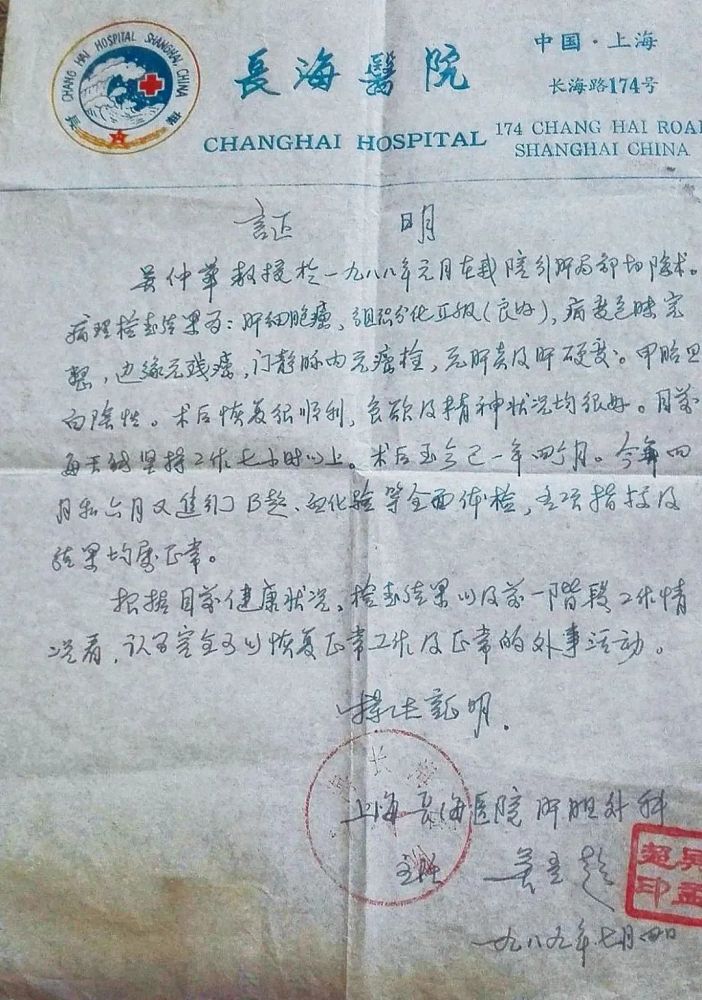 CHANG HAI HOSPITAL SHANGHAI CHINA
長海醫院
CHANGHAI HOSPITAL
中国·上海
长海路174号
174 CHANG HAI ROA
SHANGHAI CHINA
証 明
吴仲华教授于一九八八年元月在我院行肝局部切除术。
病理检查结果为：肝细胞癌，组织分化Ⅱ级（良好），病变包膜完
整，边缘无残癌，门静脉内无癌栓，无肝炎及肝硬变。甲胎旦
白阴性。术后恢复很顺利，食欲及精神状况均很好。目前
每天能坚持工作七小时以上。术后至今已一年四个月。今年四
月和六月又进行B超、血化验等全面体检，各项指标及
结果均属正常。
根据目前健康状况、检查结果以及前一阶段工作情
况看，认为完全可以恢复正常工作及正常的外事活动。
特此証明.
上海長海医院肝胆外科
主任 吴孟超
吴孟超印
一九八九年七月四日